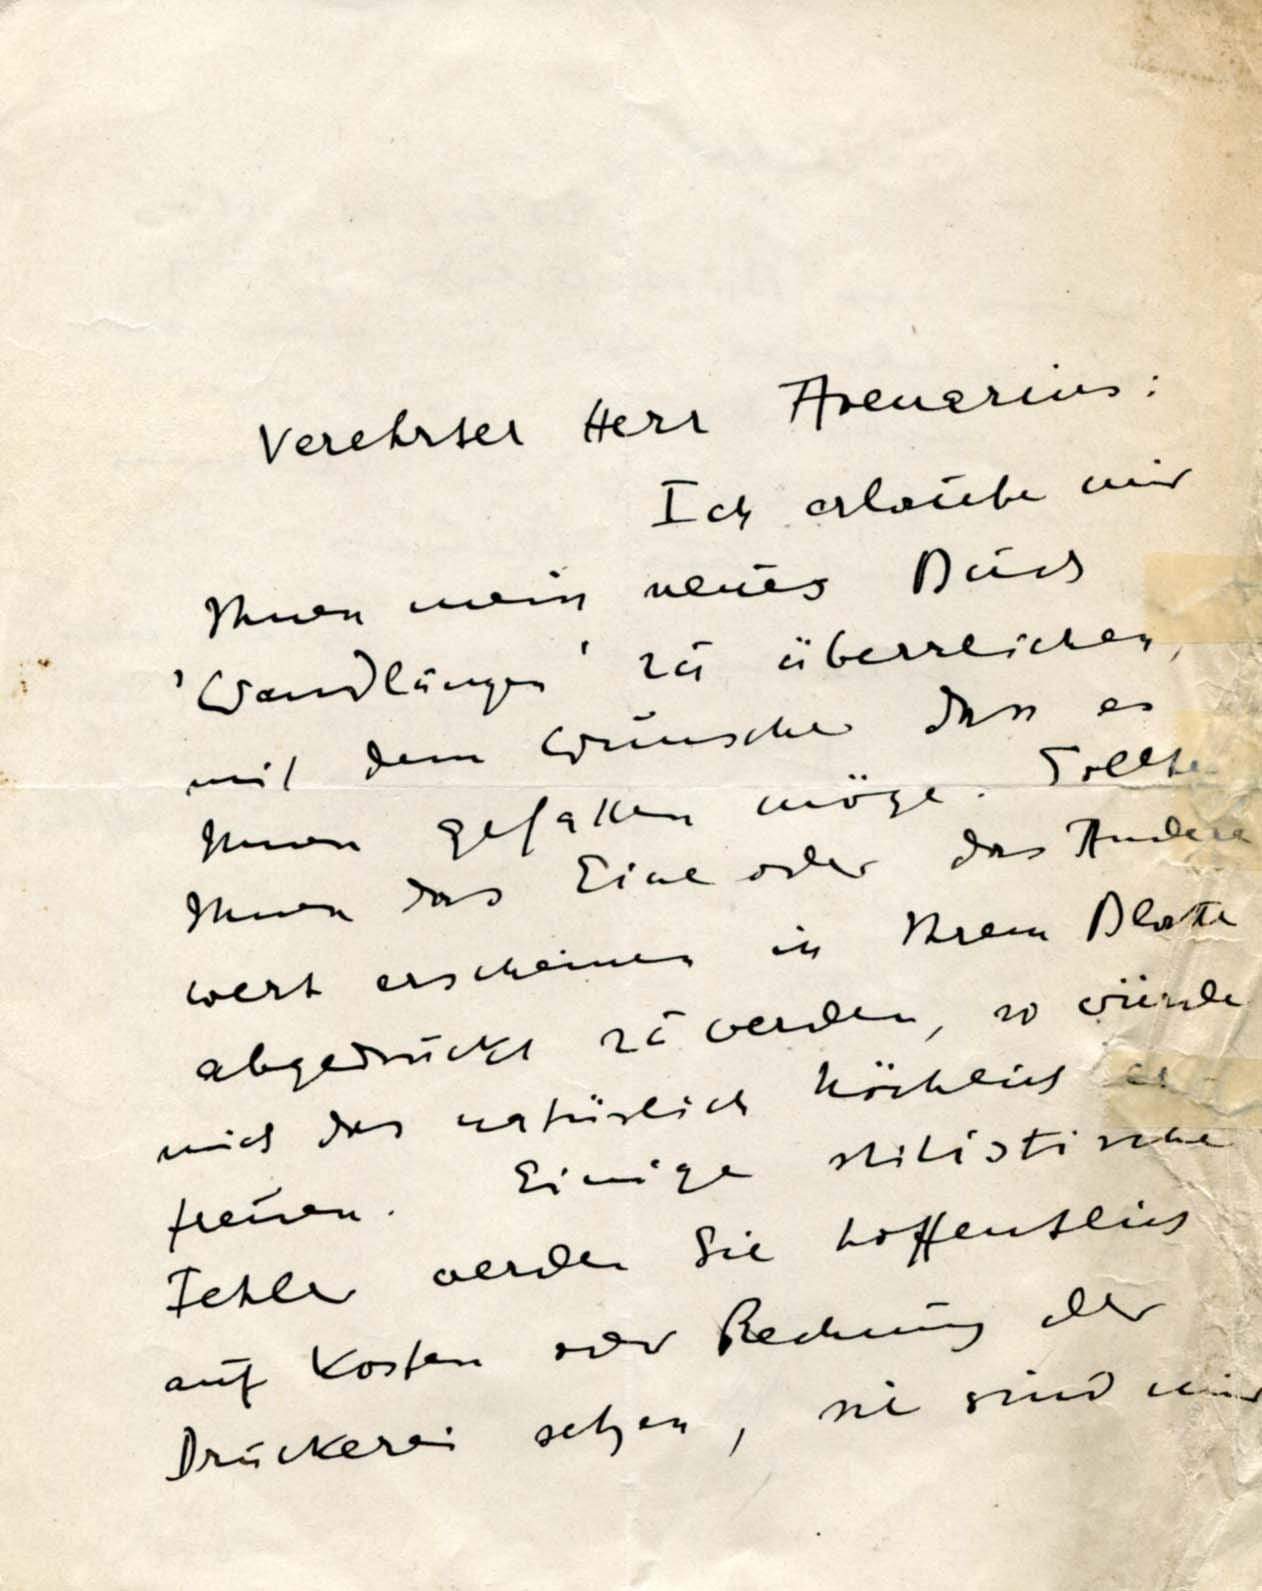 Verehrter Herr Avenarius:
Ich erlaube mir
Ihnen mein neues Buch
'Wandlungen' zu überreichen,
mit dem Wunsche dass es
Ihnen gefallen möge. Sollte
Ihnen das Eine oder das Andere
wert erscheinen in Ihrem Blatte
abgedruckt zu werden, so würde
mich das natürlich höchlich er-
freuen. Einige stilistische
Fehler werden Sie hoffentlich
auf Kosten oder Rechnung der
Druckerei setzen, sie sind mir